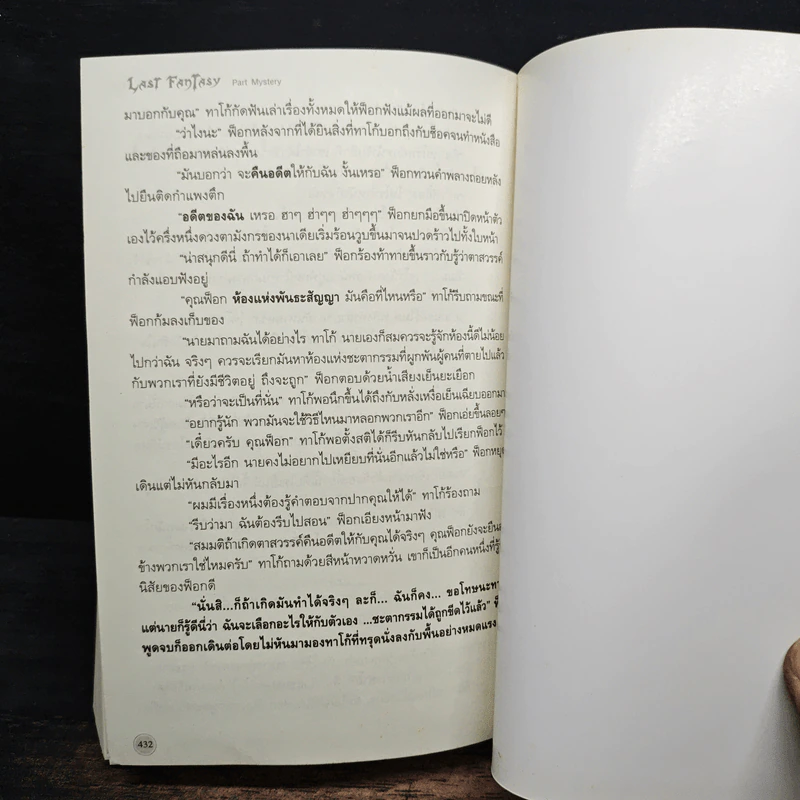 LAST FANTASY Part Mystery
มาบอกกับคุณ" ทาโก้กัดฟันเล่าเรื่องทั้งหมดให้ฟ็อกฟังแม้ผลที่ออกมาจะไม่ดี
"ว่าไงนะ" ฟ็อกหลังจากที่ได้ยินสิ่งที่ทาโก้บอกถึงกับช็อคจนทำหนังสือ
และของที่ถือมาหล่นลงพื้น
"มันบอกว่า จะคืนอดีตให้กับฉัน งั้นเหรอ" ฟ็อกทวนคำพลางถอยหลัง
ไปยืนติดกำแพงตึก
"อดีตของฉัน เหรอ ฮาๆ ฮ่าๆๆ ฮ่าๆๆๆ" ฟ็อกยกมือขึ้นมาปิดหน้าตัว
เองไว้ครึ่งหนึ่งดวงตามังกรของนาเดียเริ่มร้อนวูบขึ้นมาจนปวดร้าวไปทั้งใบหน้า
"น่าสนุกดีนี่ ถ้าทำได้ก็เอาเลย" ฟ็อกร้องท้าทายขึ้นราวกับรู้ว่าตาสวรรค์
กำลังแอบฟังอยู่
"คุณฟ็อก ห้องแห่งพันธะสัญญา มันคือที่ไหนหรือ" ทาโก้รีบถามขณะที่
ฟ็อกก้มลงเก็บของ
"นายมาถามฉันได้อย่างไร ทาโก้ นายเองก็สมควรจะรู้จักห้องนี้ดีไม่น้อย
ไปกว่าฉัน จริงๆ ควรจะเรียกมันหาห้องแห่งชะตากรรมที่ผูกพันผู้คนที่ตายไปแล้ว
กับพวกเราที่ยังมีชีวิตอยู่ ถึงจะถูก" ฟ็อกตอบด้วยน้ำเสียงเย็นยะเยือก
"หรือว่าจะเป็นที่นั่น" ทาโก้พอนึกขึ้นได้ถึงกับหลั่งเหงื่อเย็นเฉียบออกมา
"อยากรู้นัก พวกมันจะใช้วิธีไหนมาหลอกพวกเราอีก" ฟ็อกเอ่ยขึ้นลอยๆ
"เดี๋ยวครับ คุณฟ็อก" ทาโก้พอตั้งสติได้ก็รีบหันกลับไปเรียกฟ็อกไว้
"มีอะไรอีก นายคงไม่อยากไปเหยียบที่นั่นอีกแล้วไม่ใช่หรือ" ฟ็อกหยุด
เดินแต่ไม่หันกลับมา
"ผมมีเรื่องหนึ่งต้องรู้คำตอบจากปากคุณให้ได้" ทาโก้ร้องถาม
"รีบว่ามา ฉันต้องรีบไปสอน" ฟ็อกเอียงหน้ามาฟัง
"สมมติถ้าเกิดตาสวรรค์คืนอดีตให้กับคุณได้จริงๆ คุณฟ็อกยังจะยืน
ข้างพวกเราใช่ไหมครับ" ทาโก้ถามด้วยสีหน้าหวาดหวั่น เขาก็เป็นอีกคนหนึ่งที่รู้
นิสัยของฟ็อกดี
"นั่นสิ...ก็ถ้าเกิดมันทำได้จริงๆ ละก็... ฉันก็คง... ขอโทษนะทา
แต่นายก็รู้ดีนี่ว่า ฉันจะเลือกอะไรให้กับตัวเอง ...ชะตากรรมได้ถูกขีดไว้แล้ว"
พูดจบก็ออกเดินต่อโดยไม่หันมามองทาโก้ที่ทรุดนั่งลงกับพื้นอย่างหมดแรง
432